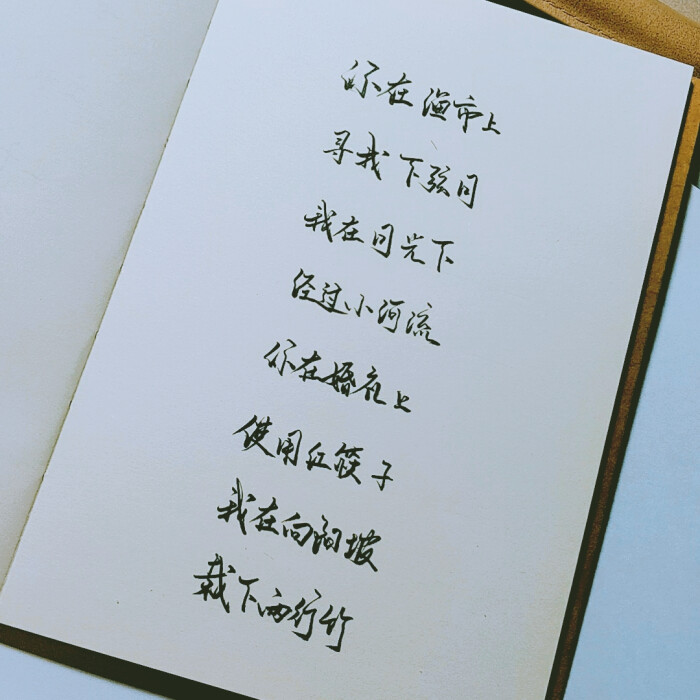 你在渔市上
寻找下弦月
我在月光下
经过小河流
你在婚礼上
使用红筷子
我在向阳坡
栽下两行竹